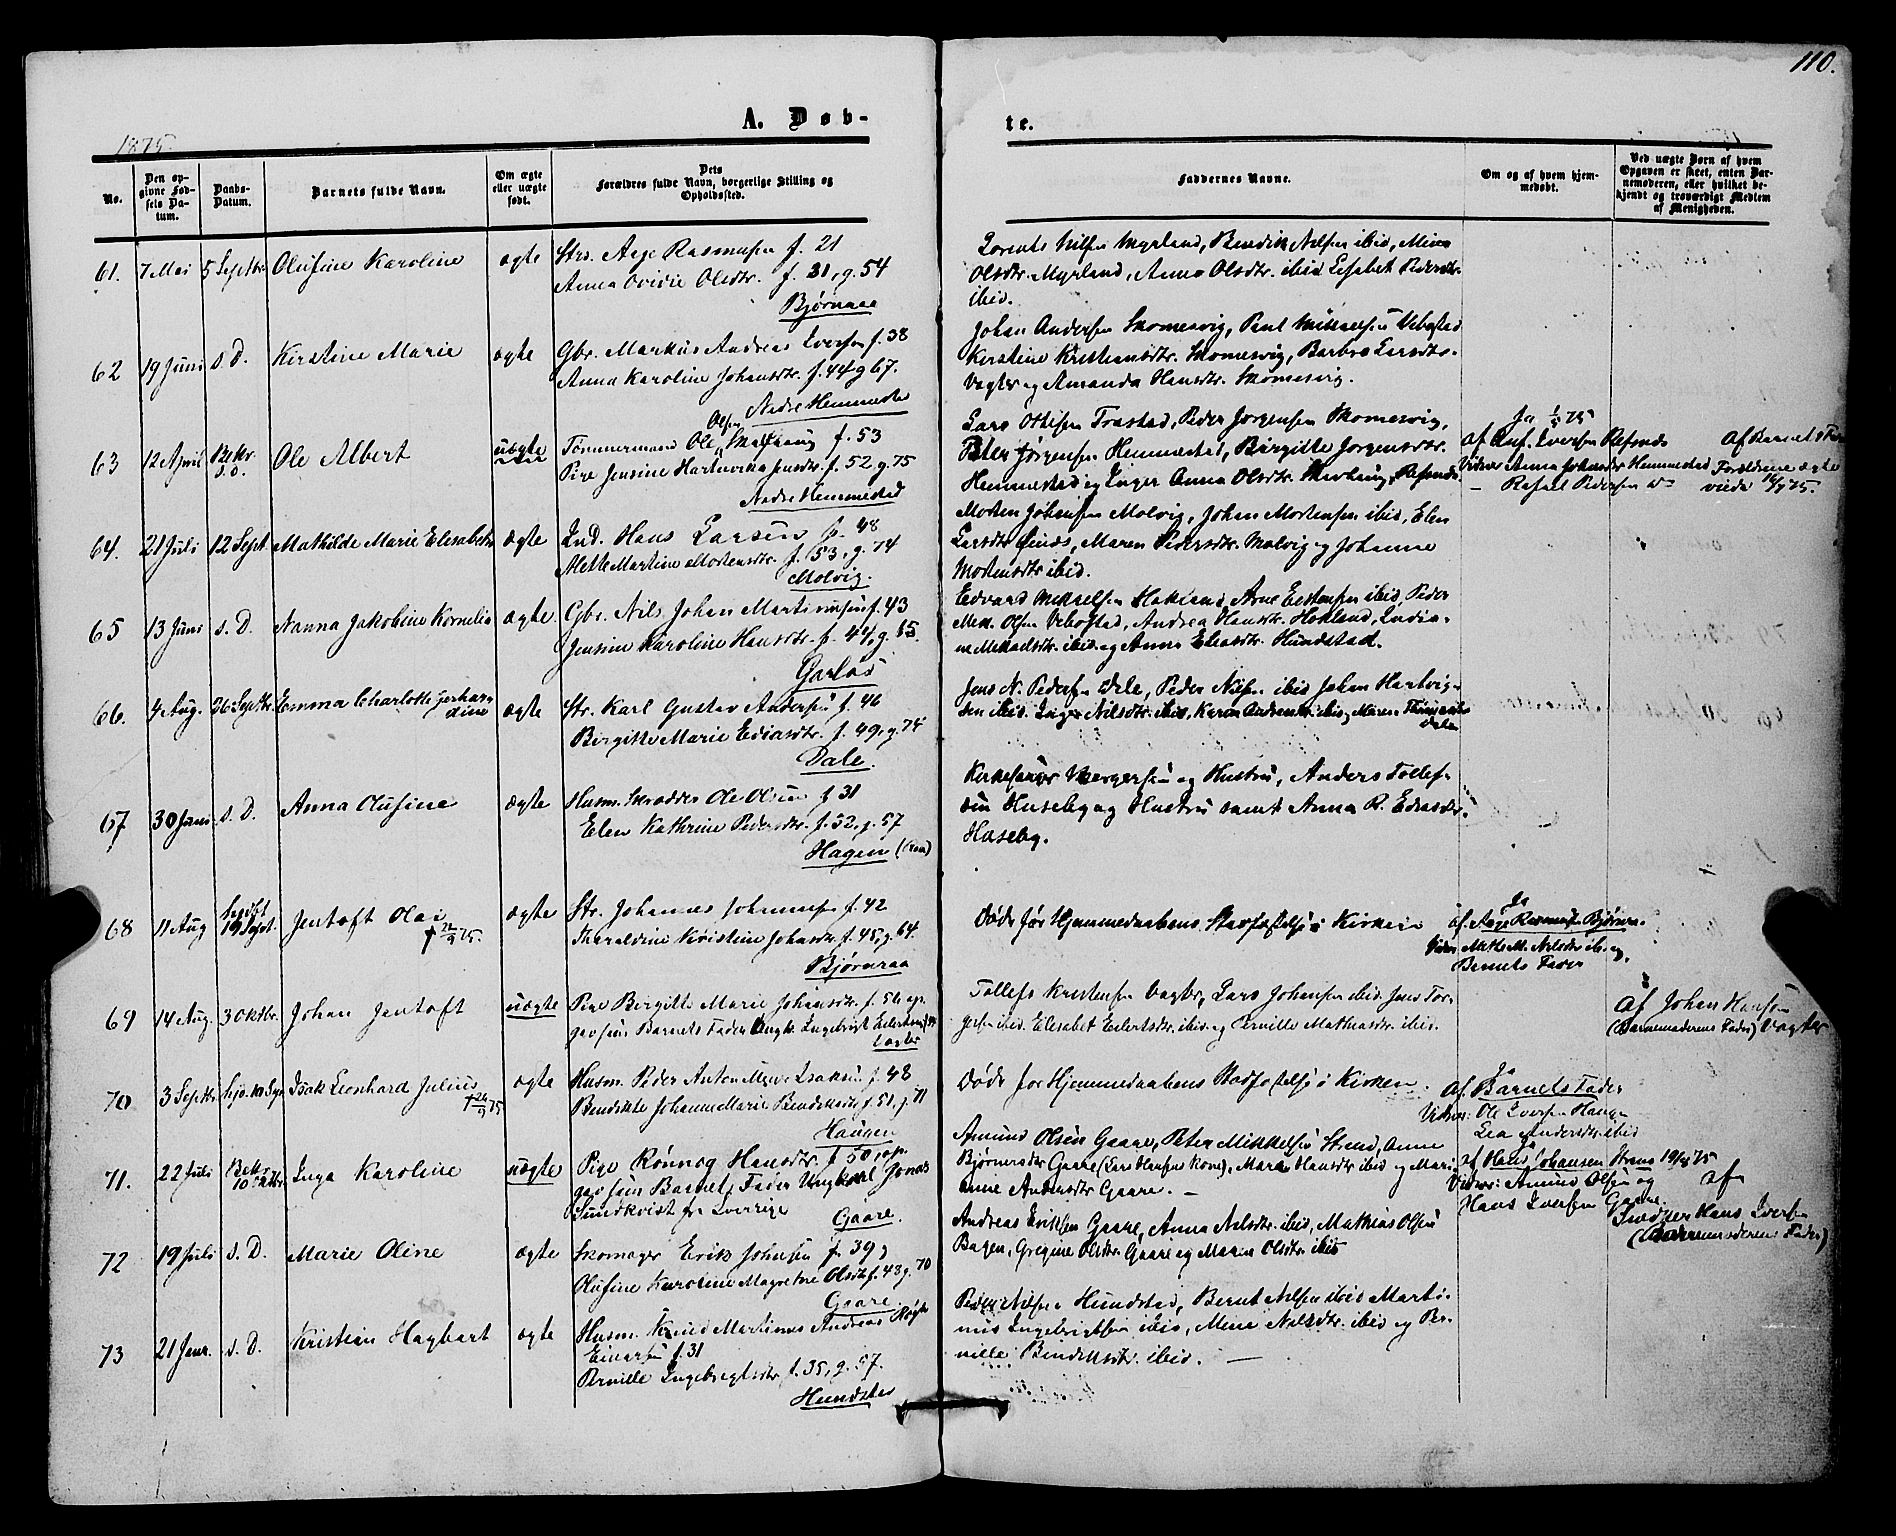 110.
A. Døb-
te.
1875.
No.
Den op-
givne Fød-
sels Da-
tum.
Daabs-
Datum.
Barnets fulde Navn.
Om ægte
eller uægte
født.
Dets
Forældres fulde Navn, borgerlige Stilling og
Opholdssted.
Faddernes Navne.
Om og af hvem hjem-
medøbt.
Ved uægte Børn af hvem
Opgaven er skeet, enten Bar-
nemoderen, eller hvilket be-
kjendt og troværdigt Medlem
af Menigheden.
61. 7 Mai 5 Septbr. Olufine Karoline ægte Str. Aage Rasmusen f. 21
Anna Ovidie Olsdtr. f. 31, g. 54
Bjørnraa
Lorents Nilsen Myrland, Bendik Nilsen ibid, Mina
Olsdtr. Myrland, Anna Olsdtr. ibid Elisabet Pedersdtr.
ibid.
62 19 Juni s. D. Kirstine Marie ægte Gbr. Markus Andreas Iversen f. 38
Anna Karoline Johansdtr. f. 44 g 67.
Nedre Hemmestad
Johan Andersen Skomesvig, Paul Mikkelsen Vebostad
Kerstine Kristiansdtr. Skomesvig, Barbro Larsdtr.
Vagter og Amanda Hansdtr. Skomesvig.
63 12 April s. D. Ole Albert uægte Tømmermand Ole Olsen f. 53
Pige Jensine Hartvikka Jensdtr. f. 52, g. 75
Nedre Hemmestad
Lars Ottesen Trastad, Peder Jørgensen Skomesvig,
Peter Jørgensen Hemmestad, Birgitte Jørgensdtr.
Hemmestad og Inger Anna Olsdtr. Refsnes
Ja
af Iversen Refsnes
Vidner Anna Johansdtr Hemmestad
Rafael Pedersen
Af Barnets Fader
Forældrene ægte
viede 75.
64. 21 Juli 12 Sept. Mathilde Marie Elesabeth ægte Ind. Hans Larsen f. 48
Mette Martine Mortensdtr. f. 53, g. 74
Molvig.
Morten Johansen Molvig, Johan Mortensen ibid, Elen
Larsdtr. Maren Pedersdtr. Molvig og Johanna
Mortensdtr ibid.
65 13 Juni s. D. Nanna Jakobine Kornelia ægte Gbr. Nils Johan Martinusen f. 43
Jensine Karoline Hansdtr. f. 44, g. 65.
Garlos
Edvard Mikkelsen Hokland, Arne Estensen ibid, Peder
Mek. Olsen Vebostad, Andrea Hansdtr. Hokland, India-
ne Mikkelsdtr. ibid og Anna Eliasdtr. Hundstad.
66. 4 Aug. 26 Septbr. Emma Charlotte Gerhar-
dine ægte Str. Karl Gustav Andersen f. 46
Birgitte Marie Ediasdtr. f. 49, g. 75
Dale.
Jens N. Pedersen Dale, Peder Nilsen ibid Johan Hartvig-
sen ibid. Inger Nilsdtr. ibid, Karen ibid, Maren
Dalen
67 30 Juni s. D. Anna Olufine ægte Husm. Skrædder Ole Olsen f 31
Elen Kathrine Pedersdtr. f. 32, g. 57
Hagen
Kirkesanger og Hustru, Anders Tollef-
sen Huseby og Hustru samt Anna R. Ediasdtr.
Haseby.
68 11 Aug 19 Sept. Jentoft Olai ægte Str. Johannes Johansen f. 42
Haraldine Kristine Johsdtr. f. 45, g. 64.
Bjørnraa
Døde før Hjemmedaabens Stadfæstelse i Kirken
Ja
af Aage Rasmusen Bjørnraa
Vidn. Mette M. Nilsdtr ibid og
Barnets Fader
69 14 Aug. 3 Oktbr. Johan Jentoft uægte Pige Birgitte Marie Johansdtr. f. 56 op-
gav som Barnets Fader Ungk. Ingebrigt
Vagter
Tollefs Kristensen Vagter, Lars Johansen ibid. Jens Tor-
gersen ibid. Elesabet Eilertsdtr. ibid. og Pernille Mathiasdtr. ibid.
af Johan Hansen
(Barnemoderens Fader) Vagter
70 3 Septbr. Isak Leonhard Julius ægte Husm. Peder Anton Meyer Isaksen f. 48
Bendikte Johanne Marie Bendiksdtr. f. 51, g. 71
Haugen
Døde før Hjemmedaabens Stadfæstelse i Kirken.
Ja
af Barnets Fader
Vidner: Ole Iversen Haugen
Lea Andersdtr. ibid
71. 22 Juli 10 Oktbr. Inga Karoline uægte Pige Rønnog Hansdtr. f 50, op-
gav som Barnets Fader Ungkarl Jonas
Sundkvist fra Sverige
Gaare.
Amund Olsen Gaare, Peter Mikkelsen Strand, Anne
Bjørnersdtr Gaare (Lars Hansens Kone), Mara Hansdtr ibid og Mari-
anne Andersdtr Gaare. —
Ja
af Hans Johansen Strand 19/8 75
Vidner: Amund Olsen og
Hans Iversen Gaare.
af
Hans Iversen
(Barnemoderens Fader)
72 19 Juli s. D. Marie Oline ægte Skomager Erik Johnsen f. 39,
Olufine Karoline Magretha Olsdtr. f. 48 g. 70
Gaare
Andreas Eriksen Gaare, Anna Nilsdtr. ibid, Mathias Olsen
Bagen, Gregine Olsdtr. Gaare og Maren Olsdtr. ibid
73 21 Janr. s. D. Kristian Hagbart ægte Husm. Knud Martinus Andreas Høgh
Einarsen f. 31
Pernille Ingebrigtsdtr. f. 35, g. 57.
Hundstad
Peder Nilsen Hundstad, Bernt Nilsen ibid Marti-
nus Ingebrigtsen ibid, Mina Nilsdtr. ibid og Per-
nille Bendiksdtr. ibid. —